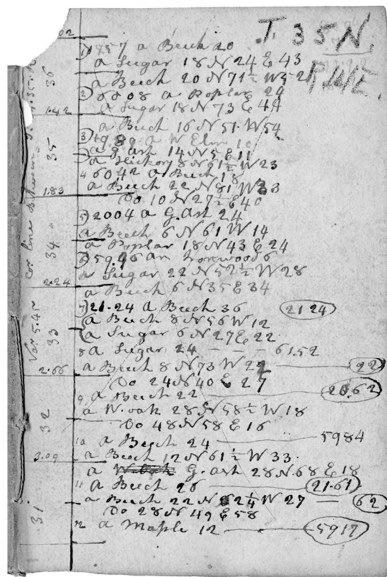 T. 35 N.
R. W.
a Beech 20
a Sugar 18 N 24 E 43
a Beech 20 N 71½ W 52
a Poplar 24
a Sugar 18 N 73 E 44
a Beech 16 N 51 W 54
a W Elm
a G. Ash 14 N 5 E 11
a Hickory 8 W 23
4 6042 a Beech 18
a Beech 22 N 81 W 33
Do 10 N 27½ E 40
5) 2004 a G. Ash 24
a Beech 6 N 61 W 14
a Poplar 18 N 43 E 24
an Ironwood 6
a Sugar 22 N 52½ W 28
a Beech 6 N 35 E 34
7) 21.24 a Beech 36 2124
a Beech 8 N 56 W 12
a Sugar 6 N 27 E 22
8 a Sugar 24 6152
a Beech 8 N 73 W 22
Do 24 N 40 E 27
9 a Beech 22 2062
a W. oak 28 N 58½ W 18
Do 48 N 58 E 16
10 a Beech 24 5984
a Beech 12 N 61½ W 33
a G. ash 28 N 68 E 18
11 a Beech 26 21.61
a Beech 22 N 62¼ W 27 62
Do 28 N 49 E 58
12 a Maple 12 5917
36
1.42
35
1.83
34
2.24
33
2.66
32
3.09
31